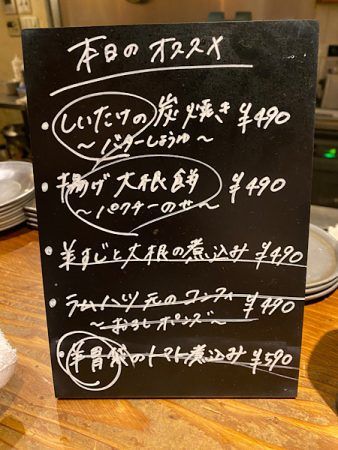 本日のオススメ
・しいたけの炭焼き ¥490
～バターしょうゆ～
・揚げ大根餅 ¥490
～パクチーのせ～
・羊すじと大根の煮込み ¥490
・ラムハツ元のコンフィ ¥490
～おろしポンズ～
・羊胃袋のトマト煮込み ¥590